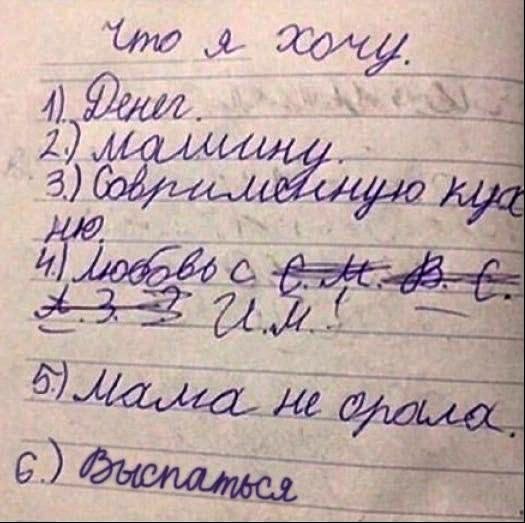 Что я хочу.
1). Денег.
2.) Машину.
3.) Современную кух
ню.
4.) Любовь с Е. М. В. С.
А. З. З И.М.!
5.) Мама не орала.
6.) Выспаться